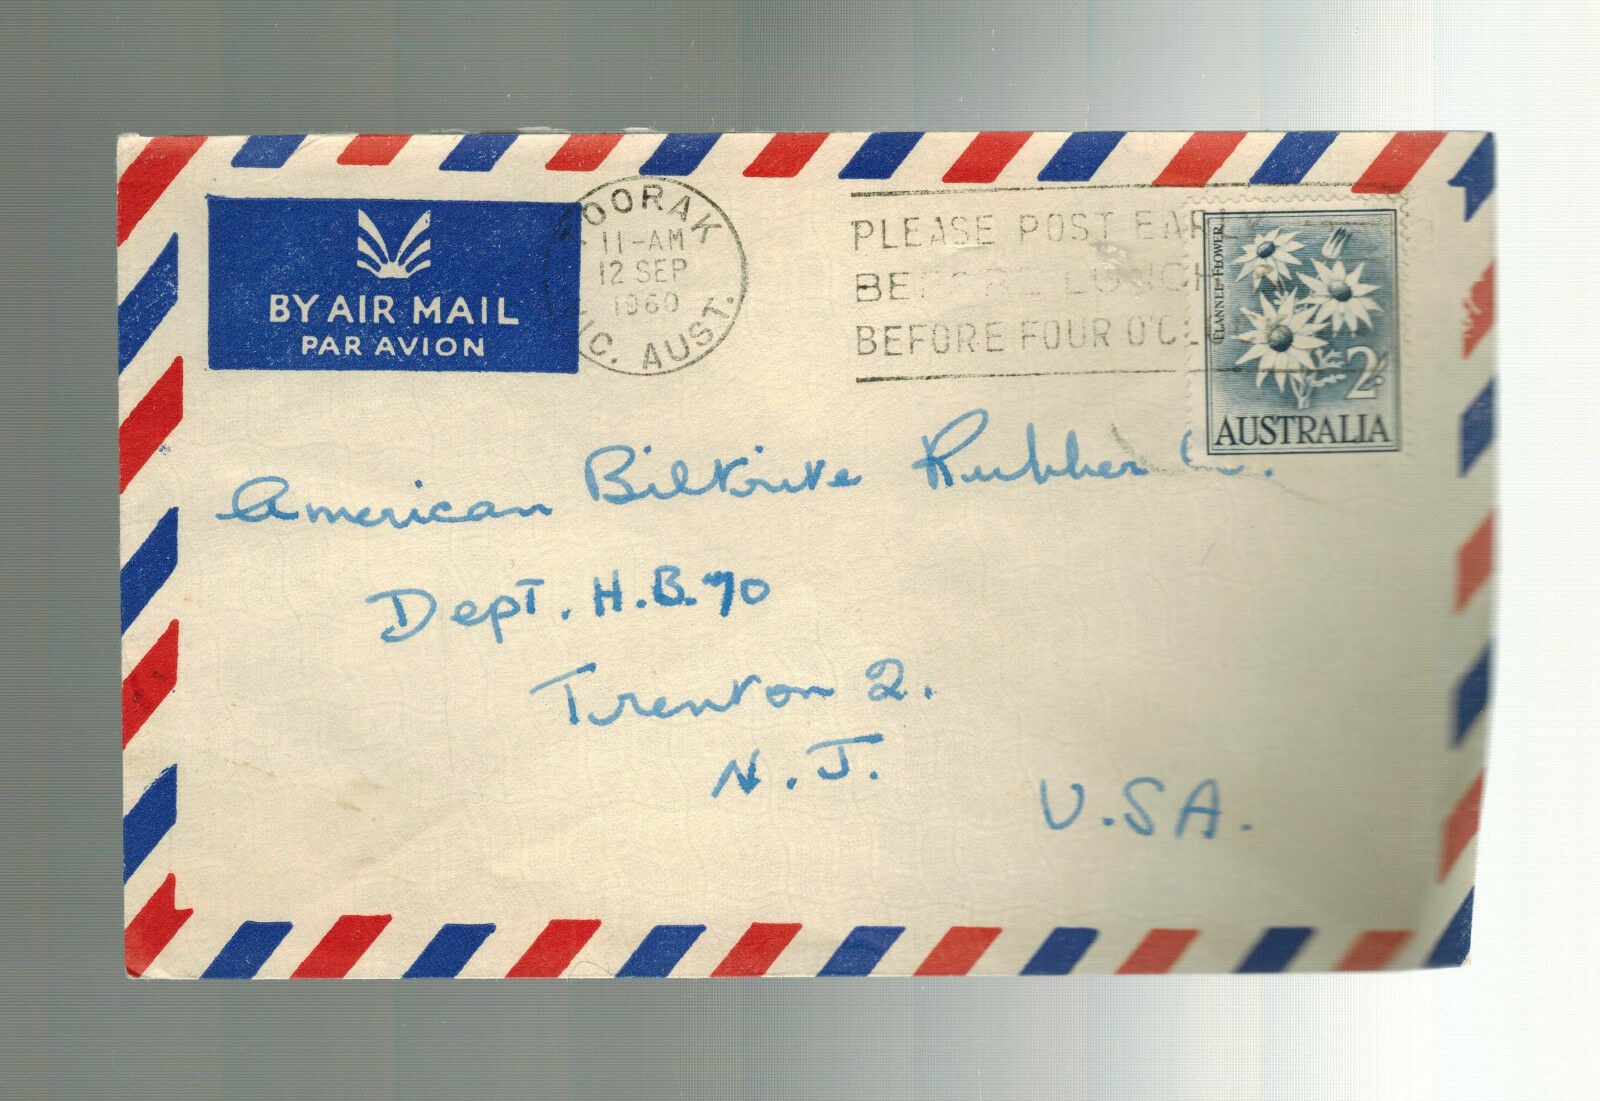 BY AIR MAIL
PAR AVION
TOORAK
11-AM
12 SEP
1960
VIC. AUST.
PLEASE POST EARLY
BEFORE LUNCH
BEFORE FOUR O'CLOCK
FLANNEL FLOWER
2/-
AUSTRALIA
American Biltrite Rubber Co.
Dept. H.B.70
Trenton 2.
N.J.
U.S.A.